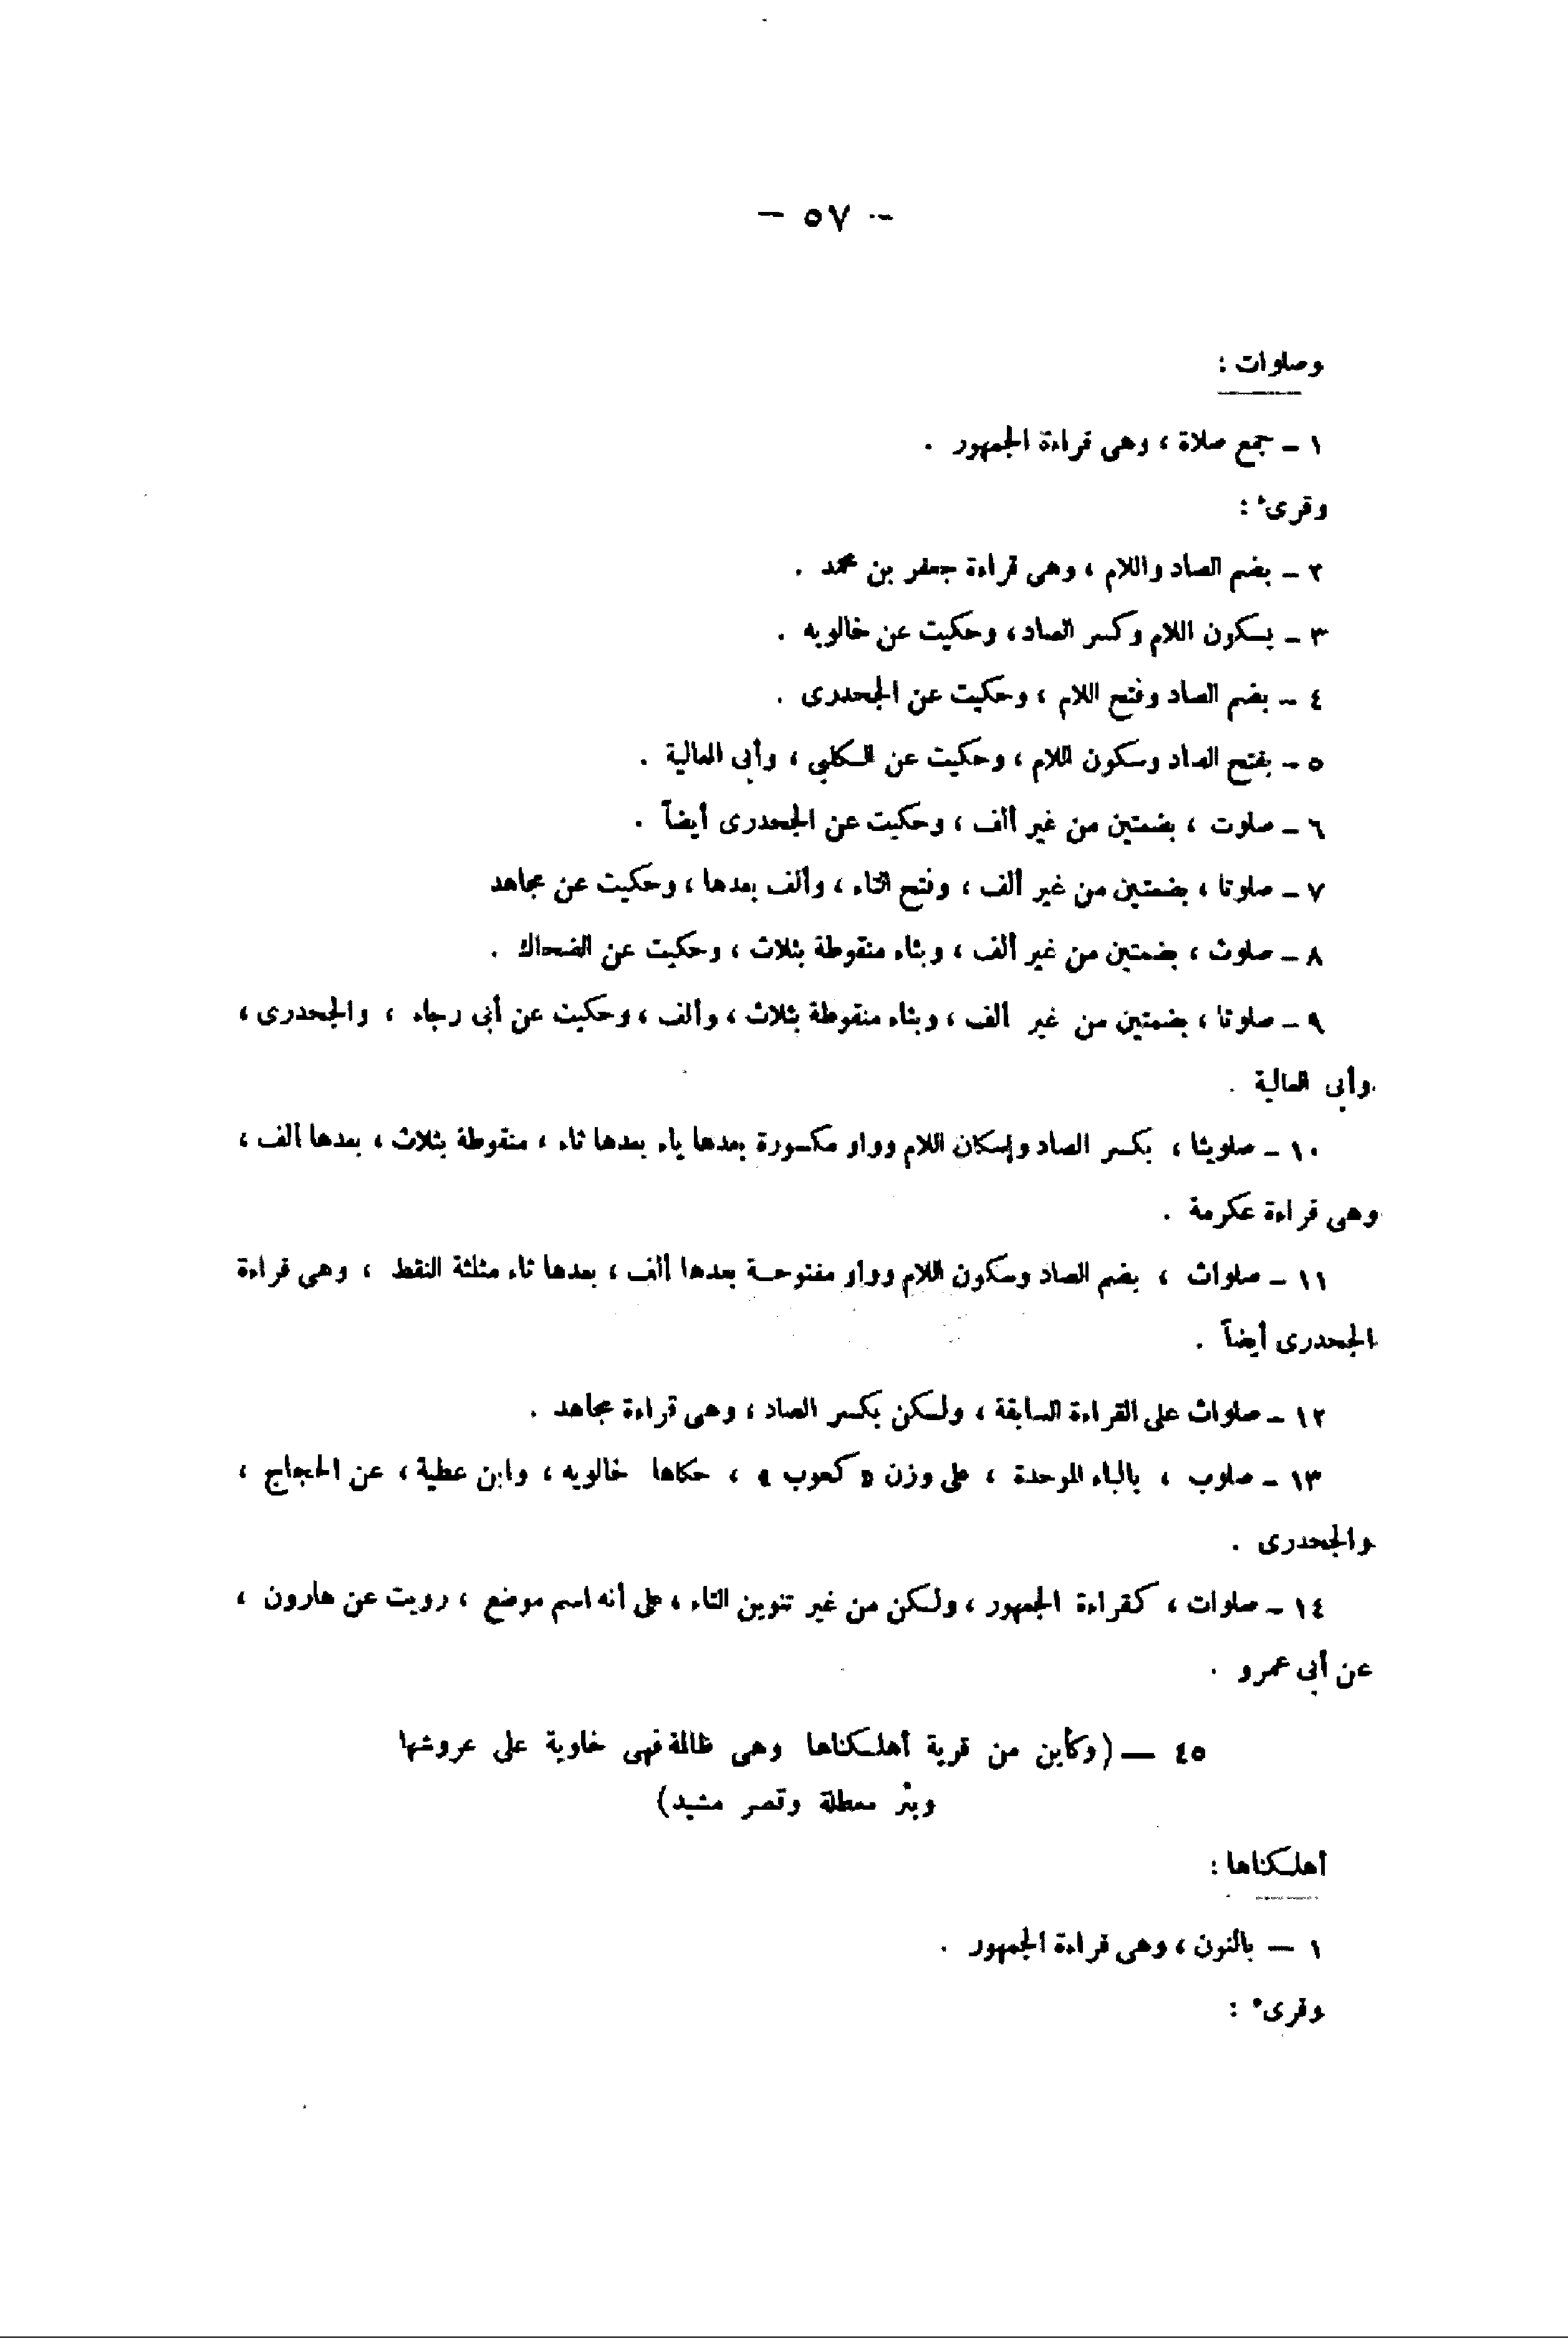 — ٥٧ —
وصلوات :
١ – جمع صلاة ، وهى قراءة الجمهور .
وقرىء :
٢ – بضم الصاد واللام ، وهى قراءة جعفر بن محمد .
٣ – بسكون اللام وكسر الصاد ، وحكيت عن خالويه .
٤ – بضم الصاد وفتح اللام ، وحكيت عن الجحدرى .
٥ – بفتح الصاد وسكون اللام ، وحكيت عن الكلبى ، وأبى العالية .
٦ – صلوت ، بضمتين من غير ألف ، وحكيت عن الجحدرى أيضاً .
٧ – صلوتا ، بضمتين من غير ألف ، وفتح التاء ، وألف بعدها ، وحكيت عن مجاهد
٨ – صلوث ، بضمتين من غير ألف ، وبثاء منقوطة بثلاث ، وحكيت عن الضحاك .
٩ – صلوثا ، بضمتين من غير ألف ، وبثاء منقوطة بثلاث ، وألف ، وحكيت عن أبى رجاء ، والجحدرى ،
وأبى العالية .
١٠ – صلويثا ، بكسر الصاد وإسكان اللام وواو مكسورة بعدها ياء بعدها ثاء ، منقوطة بثلاث ، بعدها ألف ،
وهى قراءة عكرمة .
١١ – صلواث ، بضم الصاد وسكون اللام وواو مفتوحة بعدها ألف ، بعدها ثاء مثلثة النقط ، وهى قراءة
الجحدرى أيضاً .
١٢ – صلواث على القراءة السابقة ، ولكن بكسر الصاد ، وهى قراءة مجاهد .
١٣ – صلوب ، بالباء الموحدة ، على وزن « كعوب » ، حكاها خالويه ، وابن عطية ، عن الحجاج ،
والجحدرى .
١٤ – صلوات ، كقراءة الجمهور ، ولكن من غير تنوين التاء ، على أنه اسم موضع ، رويت عن هارون ،
عن أبى عمرو .
٤٥ — (وكأين من قرية أهلكناها وهى ظالمة فهى خاوية على عروشها
وبئر معطلة وقصر مشيد)
أهلكناها :
١ — بالنون ، وهى قراءة الجمهور .
وقرىء :